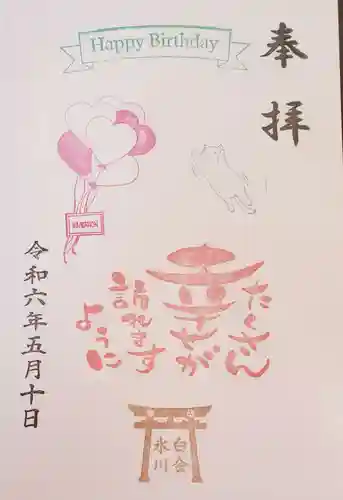 Happy Birthday
奉拝
たくさん
幸せが
訪れます
ように
白会
氷川
令和六年五月十日